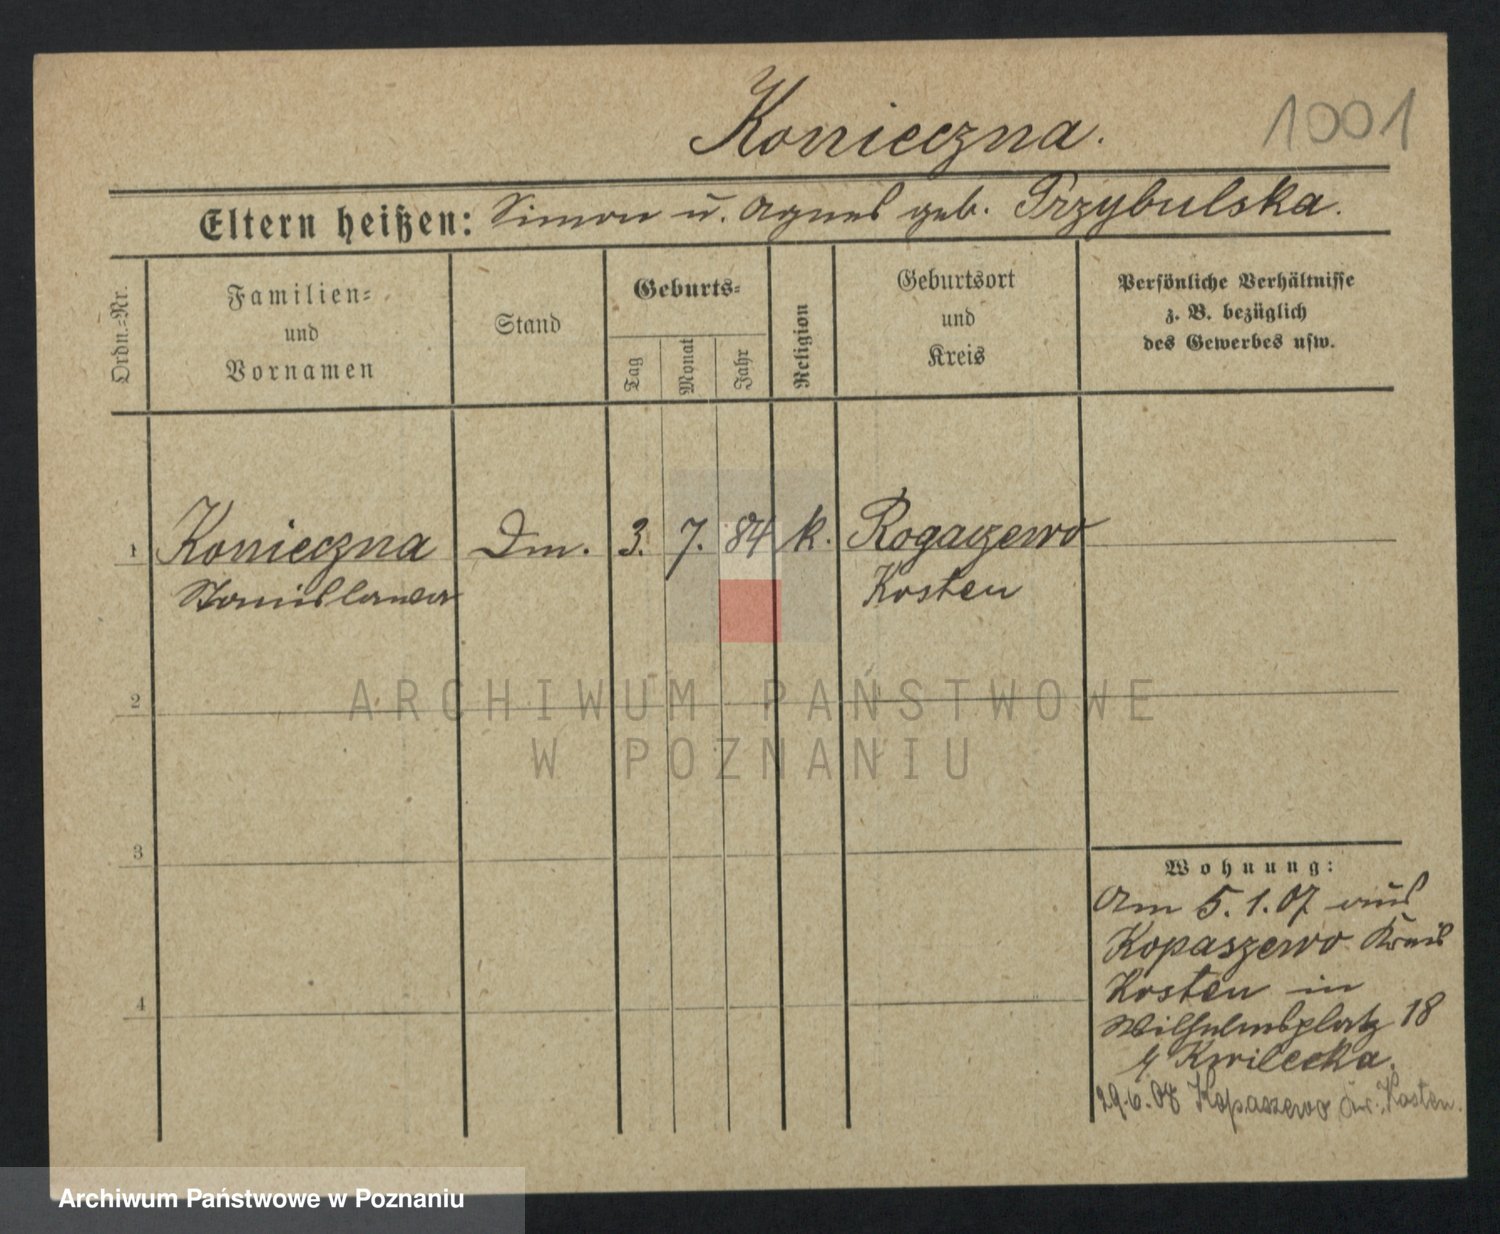 Konieczna.
1001
Eltern heißen: Simon u. Agnes geb. Przybulska.
Ordn.=Nr.
Familien=
und
Vornamen
Stand
Geburts=
Tag
Monat
Jahr
Religion
Geburtsort
und
Kreis
Persönliche Verhältnisse
z. B. bezüglich
des Gewerbes usw.
1 Konieczna Dm. 3. 7. 84 k. Rogaczewo
Stanislawa Kosten
2
ARCHIWUM PAŃSTWOWE
W POZNANIU
3
Wohnung:
Am 5.1.07 aus
Kopaszewo Kreis
Kosten in
4
Wilhelmsplatz 18
Kwilecka.
29.6.07 Kopaszewo Kr. Kosten.
Archiwum Państwowe w Poznaniu